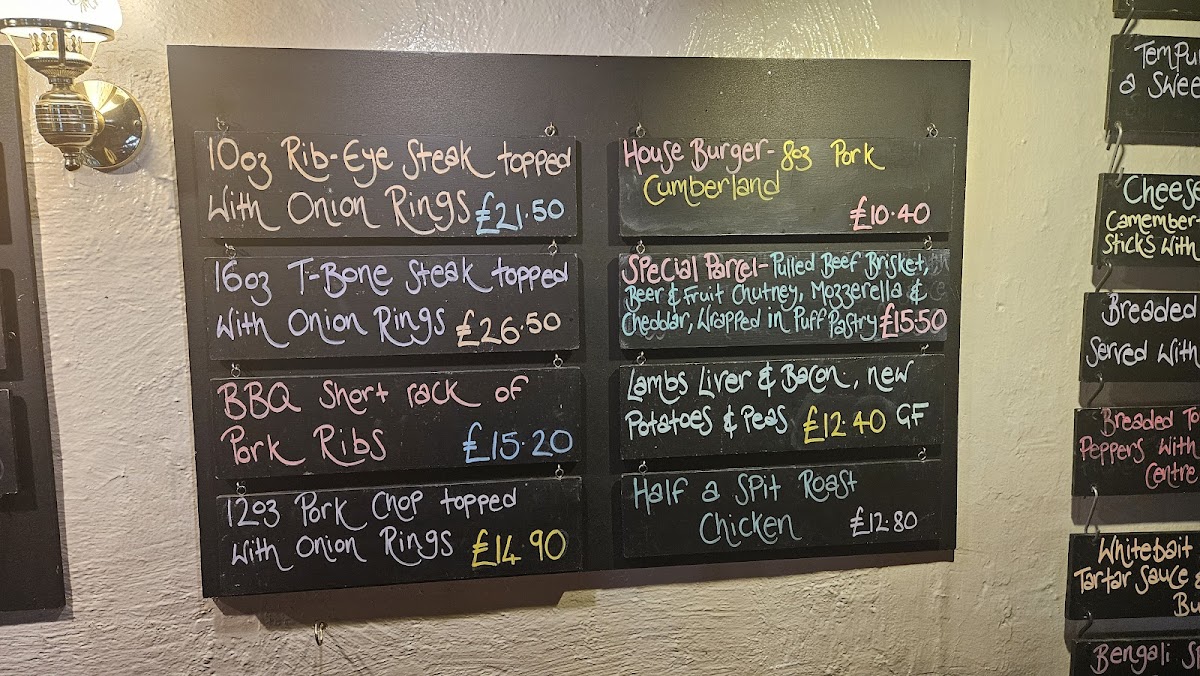 10oz Rib-Eye Steak topped
With Onion Rings £21.50
16oz T-Bone Steak topped
With Onion Rings £26.50
BBQ Short rack of
Pork Ribs £15.20
12oz Pork Chop topped
with Onion Rings £14.90
House Burger - 8oz Pork
Cumberland
£10.40
Special Parcel - Pulled Beef Brisket,
Beer & Fruit Chutney, Mozzerella &
Cheddar, Wrapped in Puff Pastry £15.50
Lambs Liver & Bacon, new
Potatoes & Peas £12.40 GF
Half a Spit Roast
Chicken £12.80
a
Camember-
Sticks With
Breaded
Served With
Breaded
Peppers With
Centre
Whitebait
Tartar Sauce
Bengali